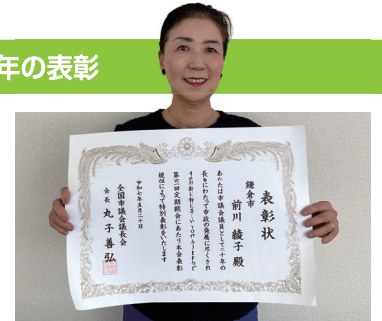 年の表彰
表彰状
鎌倉市
前川綾子殿
あなたは市議会議員として二十年の
長きにわたって市政の発展に尽くされ
第百一回定期総会にあたり本会表彰
規程によって特別表彰をいたします
令和七年五月二十日
全国市議会議長会
会長 丸子善弘